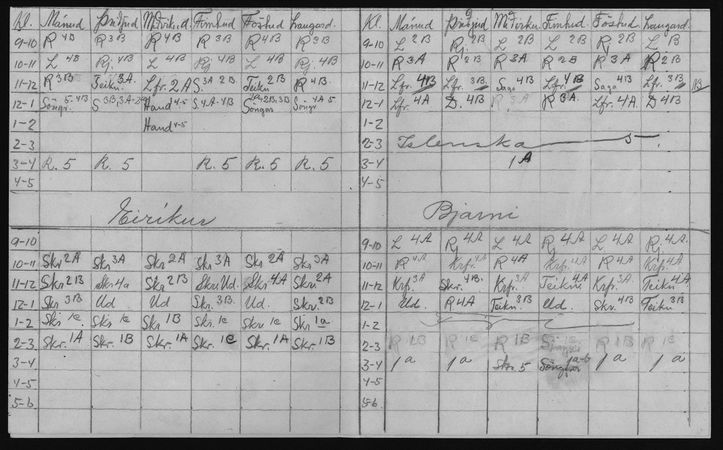 Kl. Mánud Þriðjud Miðvikud. Fimtud Föstud Laugard.
9-10 R 4B R 3B R 4B R 3B R 4B R 3B
10-11 L 4B Rj. 4B L 4B Rj 4B L 4B Rj. 4B
11-12 R 3B Teikn. 3A. Lfr. 2A S. 3A 2B. Teikn 2B R 4B.
12-1 Söngr. 5-4B S 3B, 3A Hand 4-5 S. 4A-4B Söngr Söngr 4A 5
1-2 Hand 4-5
2-3
3-4 R. 5 R. 5 R. 5 R. 5 R. 5
4-5
Eiríkur
9-10
10-11 Skr 2A Skr 3A Skr 2A Skr 3A Skr 2A Skr 3A
11-12 Skr 2B Skr 4a Skr 2B Skr. Ud. Skr 4A Skr. 2A
12-1 Skr 3B Ud Ud Skr. 3B. Ud. Skr. 2B
1-2 Skr 1c. Skr. 1c Skr 1B Skr. 1c Skr 1c Skr 1a
2-3 Skr. 1A Skr. 1B Skr. 1A Skr. 1C Skr. 1A Skr. 1B
3-4
4-5
5-6
Kl. Mánud Þriðjud Miðvikud. Fimtud Föstud Laugard.
9-10 L 2B Rj 2B L 2B L 2B Rj 2B L B
10-11 R 3A R 2B R 3A R 2B R 3A R 2B
11-12 Lfr. 4B Lfr. 3B. Saga 4B Lfr. 4B Saga 4B Lfr. 3B B
12-1 Lfr. 4A D. 4B R 3A R 3A Lfr. 4A. D 4B
1-2
2-3 Íslenska 5
3-4 1A
4-5
Bjarni
9-10 L 4A Rj 4A L 4A Rj 4A L 4A Rj. 4A
10-11 R 4A Krf. 4A R 4A Krf. 4A R 4A Krf. 4A
11-12 Krf. 3A Skr. 4B. Krf. 3A Teikn 4A Krf. 3A. Teikn 4A
12-1 Ud. R 4A Teikn 3B Ud. Skr. 4B Teikn 3B
1-2
2-3 R 1B R 1C R 1B Söngur R 1B R 1C
3-4 1a 1a Skr 5 Söngur 1a-b 1a 1a
4-5
5-6